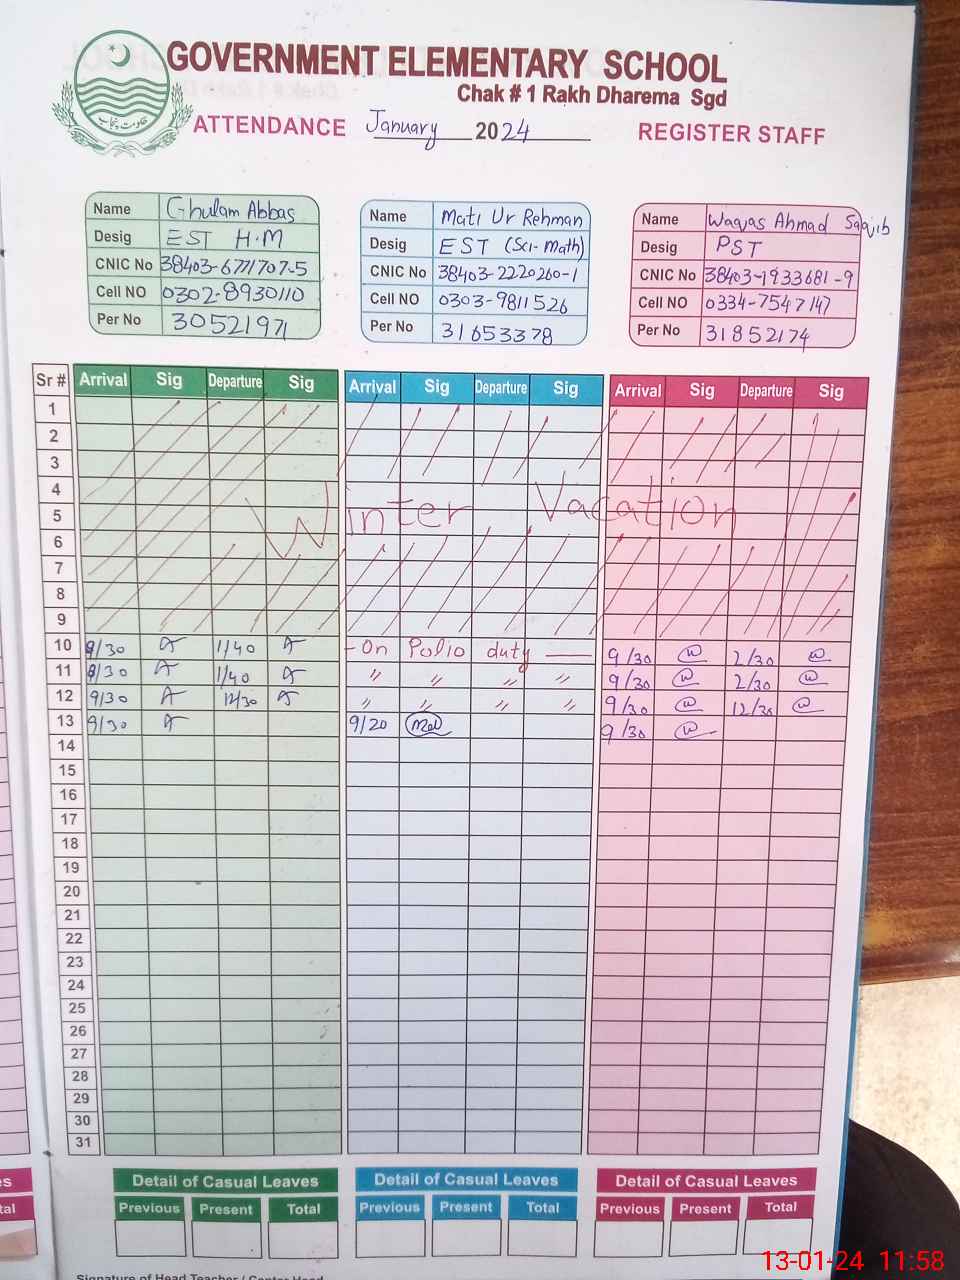 GOVERNMENT ELEMENTARY SCHOOL
Chak # 1 Rakh Dharema Sgd
حکومت پنجاب
ATTENDANCE January 2024 REGISTER STAFF
Name Ghulam Abbas
Desig EST H.M
CNIC No 38403-6771707-5
Cell NO 0302-8930110
Per No 30521971
Name Mati Ur Rehman
Desig EST (Sci-Math)
CNIC No 38403-2220260-1
Cell NO 0303-9811526
Per No 31653378
Name Waqas Ahmad Saqib
Desig PST
CNIC No 38403-1933681-9
Cell NO 0334-7547147
Per No 31852174
Sr # Arrival Sig Departure Sig Arrival Sig Departure Sig Arrival Sig Departure Sig
1
2
3
4
5 Winter Vacation
6
7
8
9
10 9/30 1/40 - On Polio duty — 9/30 2/30
11 8/30 1/40 " " " " 9/30 2/30
12 9/30 12/30 " " " " 9/30 12/30
13 9/30 9/20 9/30
14
15
16
17
18
19
20
21
22
23
24
25
26
27
28
29
30
31
Detail of Casual Leaves Detail of Casual Leaves Detail of Casual Leaves
Previous Present Total Previous Present Total Previous Present Total
Signature of Head Teacher / Center Head
13-01-24 11:58